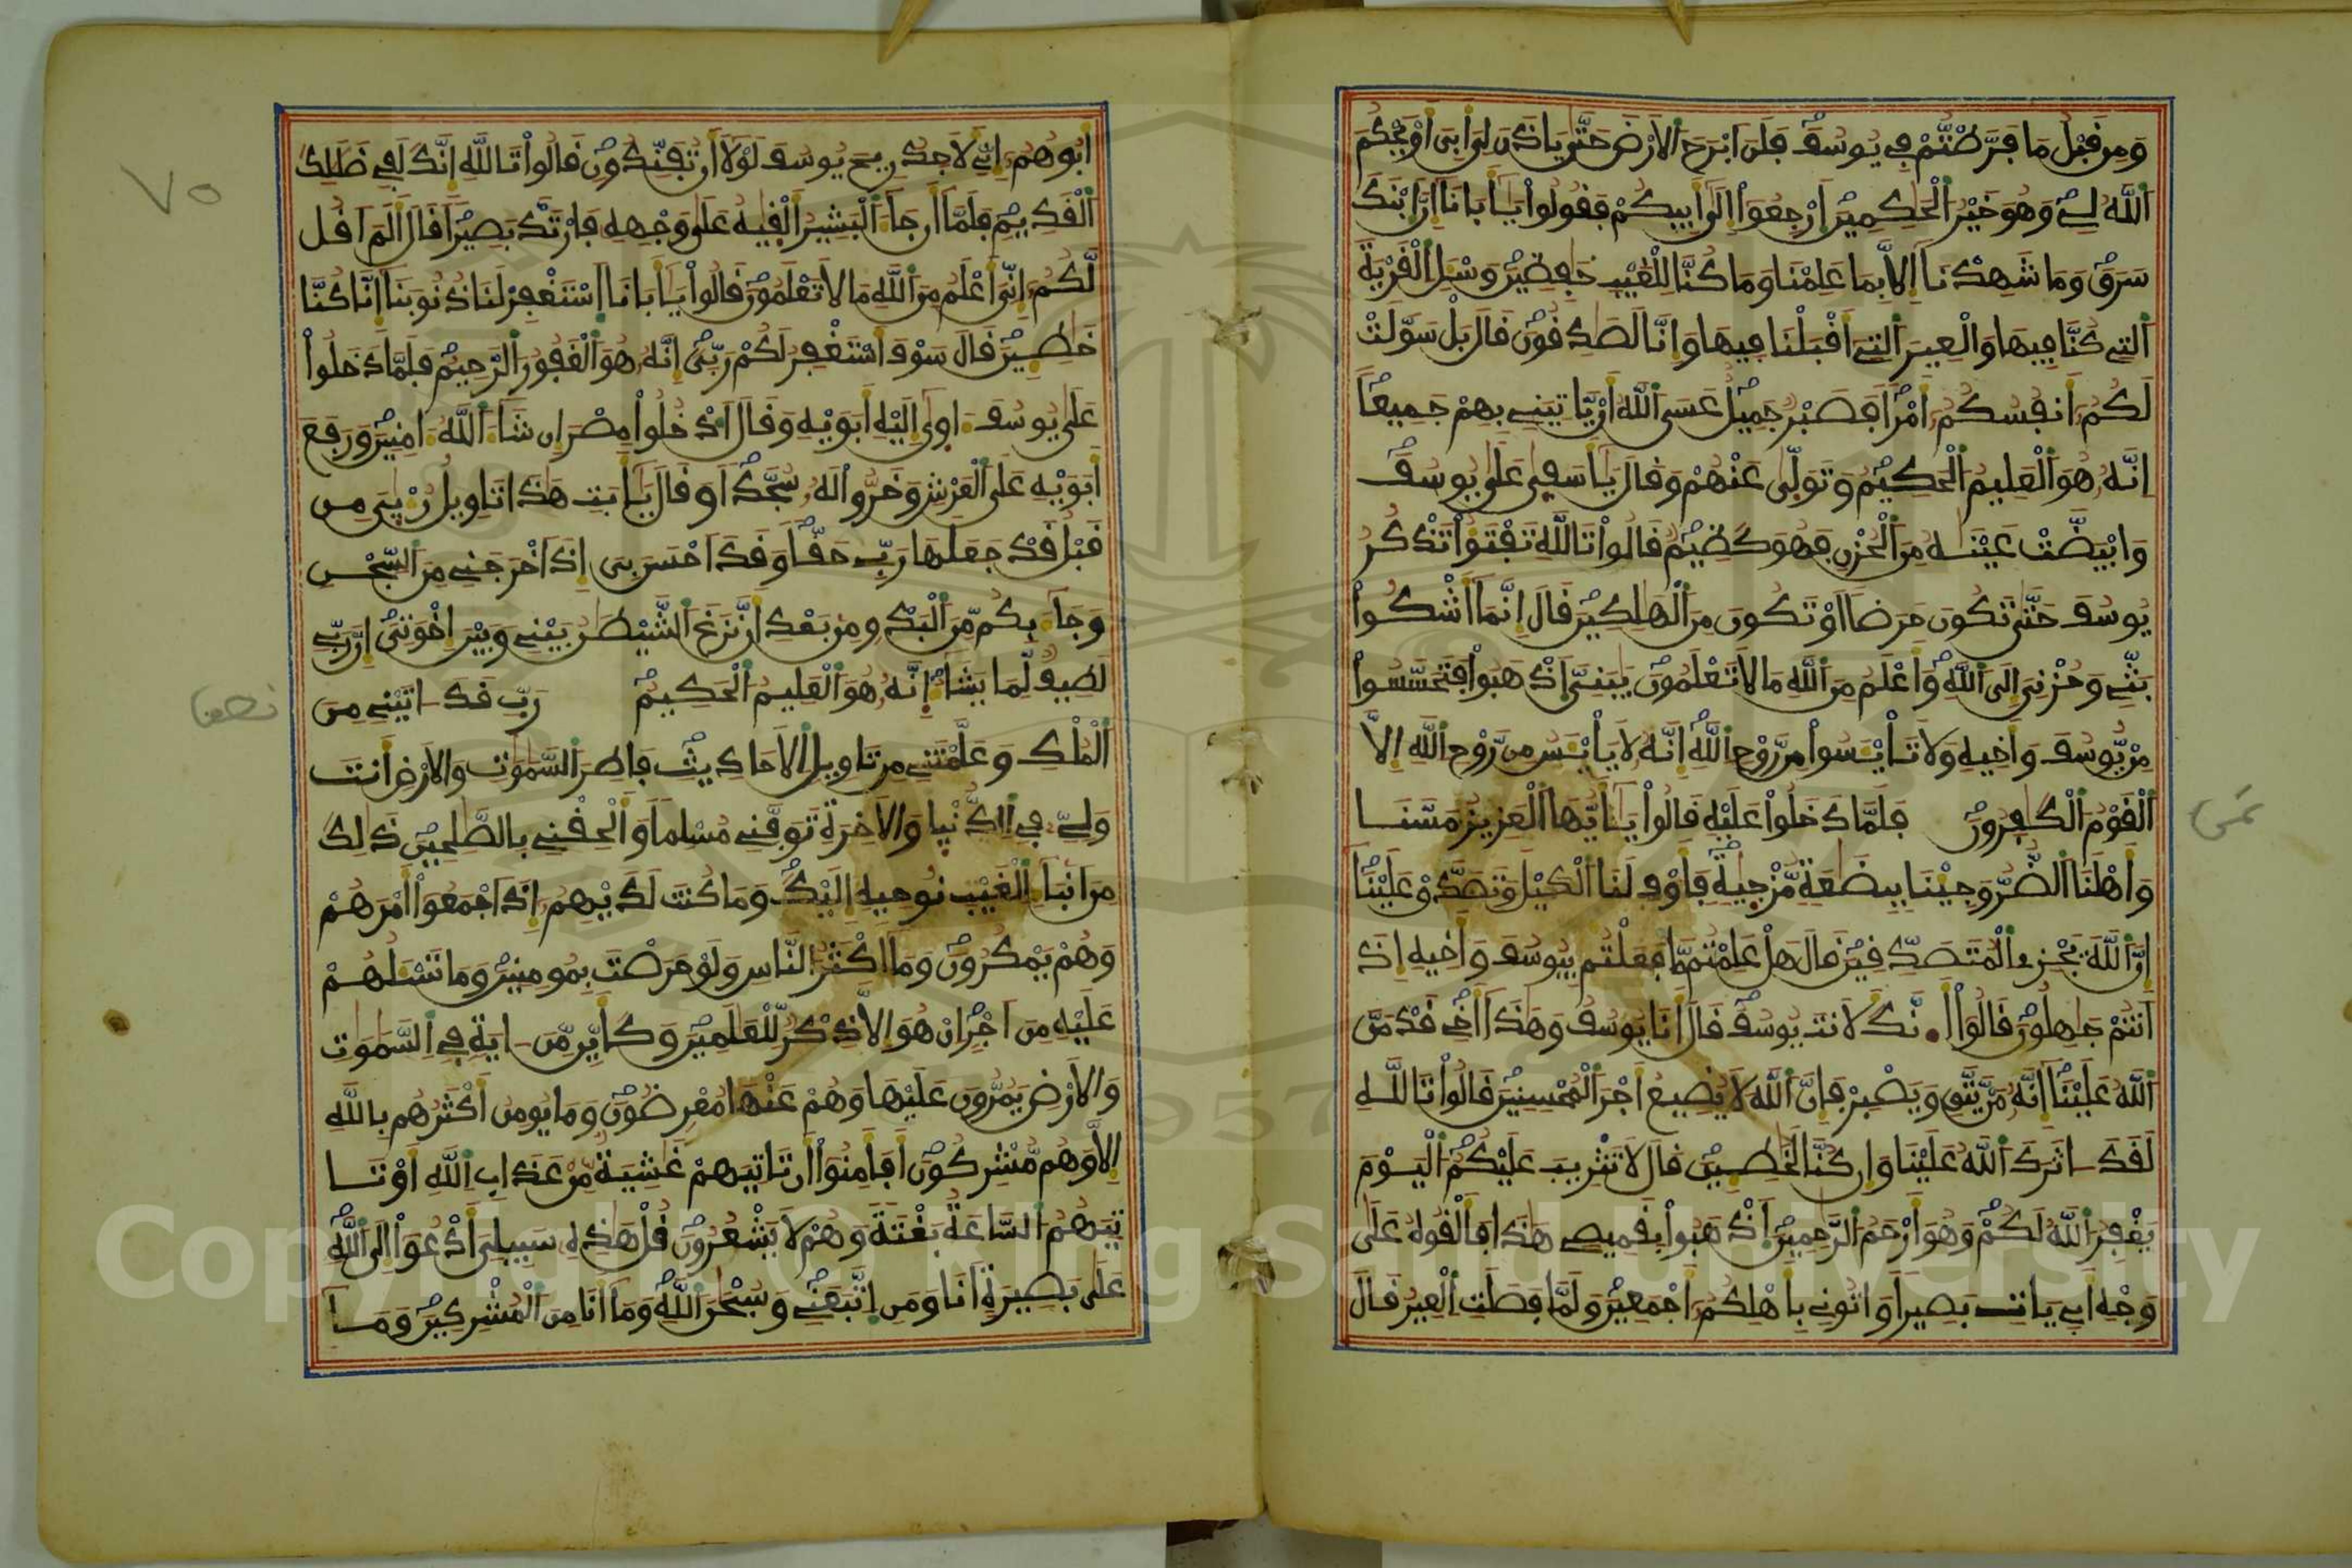 وَمِن قَبْلُ مَا فَرَّطتُّمْ فِي يُوسُفَ فَلَنَ اَبْرَحَ اَلَارْضَ حَتَّىٰ يَاذَنَ لِيَ أَبِيَ أَوْ يَحْكُمَ
اَللَّهُ لِي وَهُوَ خَيْرُ اُلْحَٰكِمِينَ اَرْجِعُوٓاْ إِلَىٰٓ أَبِيكُمْ فَقُولُواْ يَٰٓأَبَانَآ إِنَّ اَبْنَكَ
سَرَقَ وَمَا شَهِدْنَآ إِلَّا بِمَا عَلِمْنَا وَمَا كُنَّا لِلْغَيْبِ حَٰفِظِينَ وَسْـَٔلِ اِلْقَرْيَةَ
اَلتِي كُنَّا فِيهَا وَالْعِيرَ اَلتِيٓ أَقْبَلْنَا فِيهَا وَإِنَّا لَصَٰدِقُونَ قَالَ بَلْ سَوَّلَتْ
لَكُمُۥٓ أَنفُسُكُمُۥٓ أَمْراً فَصَبْرٌ جَمِيلٌ عَسَى اَللَّهُ أَنْ يَّاتِيَنِي بِهِمْ جَمِيعاً
اِنَّهُۥ هُوَ اَلْعَلِيمُ اُلْحَكِيمُ وَتَوَلَّىٰ عَنْهُمْ وَقَالَ يَٰٓأَسَفَىٰ عَلَىٰ يُوسُفَ
وَابْيَضَّتْ عَيْنَٰهُ مِنَ اَلْحُزْنِ فَهُوَ كَظِيمٌ قَالُواْ تَاللَّهِ تَفْتَؤُاْ تَذْكُرُ
يُوسُفَ حَتَّىٰ تَكُونَ حَرَضاً أَوْ تَكُونَ مِنَ اَلْهَٰلِكِينَ قَالَ إِنَّمَآ أَشْكُواْ
بَثِّي وَحُزْنِيَ إِلَى اَللَّهِ وَأَعْلَمُ مِنَ اَللَّهِ مَا لَا تَعْلَمُونَ يَٰبَنِيَّ اَذْهَبُواْ فَتَحَسَّسُواْ
مِنْ يُّوسُفَ وَأَخِيهِ وَلَا تَاْيْـَٔسُواْ مِن رَّوْحِ اِللَّهِ إِنَّهُۥ لَا يَاْيْـَٔسُ مِن رَّوْحِ اِللَّهِ إِلَّا
اَلْقَوْمُ اُلْكَٰفِرُونَ فَلَمَّا دَخَلُواْ عَلَيْهِ قَالُواْ يَٰٓأَيُّهَا اَلْعَزِيزُ مَسَّنَا
وَأَهْلَنَا اَلضُّرُّ وَجِيْنَا بِبِضَٰعَةٍ مُّزْجَىٰةٍ فَأَوْفِ لَنَا اَلْكَيْلَ وَتَصَدَّقْ عَلَيْنَآ
إِنَّ اَللَّهَ يَجْزِي اِلْمُتَصَدِّقِينَ قَالَ هَلْ عَلِمْتُم مَّا فَعَلْتُم بِيُوسُفَ وَأَخِيهِ إِذَ
اَنتُمْ جَٰهِلُونَ قَالُوٓاْ أَ۟نَّكَ لَأَنتَ يُوسُفُ قَالَ أَنَا يُوسُفُ وَهَٰذَآ أَخِي قَدْ مَنَّ
اَللَّهُ عَلَيْنَآ إِنَّهُۥ مَنْ يَّتَّقِ وَيَصْبِرْ فَإِنَّ اَللَّهَ لَا يُضِيعُ أَجْرَ اَلْمُحْسِنِينَ قَالُواْ تَاللَّهِ
لَقَدَ اٰثَرَكَ اَللَّهُ عَلَيْنَا وَإِن كُنَّا لَخَٰطِـِٕينَ قَالَ لَا تَثْرِيبَ عَلَيْكُمُ اُلْيَوْمَ
يَغْفِرُ اُللَّهُ لَكُمْ وَهُوَ أَرْحَمُ اُلرَّٰحِمِينَ اَذْهَبُواْ بِقَمِيصِي هَٰذَا فَأَلْقُوهُ عَلَىٰ
وَجْهِ أَبِي يَاتِ بَصِيراً وَاتُونِي بِأَهْلِكُمُۥٓ أَجْمَعِينَ وَلَمَّا فَصَلَتِ اِلْعِيرُ قَالَ
ثمن
أَبُوهُمُۥٓ إِنِّي لَأَجِدُ رِيحَ يُوسُفَ لَوْلَآ أَن تُفَنِّدُونِ قَالُواْ تَاللَّهِ إِنَّكَ لَفِي ضَلَٰلِكَ
اَلْقَدِيمِ فَلَمَّآ أَن جَآءَ اَلْبَشِيرُ أَلْقَىٰهُ عَلَىٰ وَجْهِهِ فَارْتَدَّ بَصِيراً قَالَ أَلَمَ اَقُل
لَّكُمُۥٓ إِنِّيَ أَعْلَمُ مِنَ اَللَّهِ مَا لَا تَعْلَمُونَ قَالُواْ يَٰٓأَبَانَا اَسْتَغْفِرْ لَنَا ذُنُوبَنَآ إِنَّا كُنَّا
خَٰطِـِٕينَ قَالَ سَوْفَ أَسْتَغْفِرُ لَكُمْ رَبِّيَ إِنَّهُۥ هُوَ اَلْغَفُورُ اُلرَّحِيمُ فَلَمَّا دَخَلُواْ
عَلَىٰ يُوسُفَ ءَاوَىٰٓ إِلَيْهِ أَبَوَيْهِ وَقَالَ اَدْخُلُواْ مِصْرَ إِن شَآءَ اَللَّهُ ءَامِنِينَ وَرَفَعَ
أَبَوَيْهِ عَلَى اَلْعَرْشِ وَخَرُّواْ لَهُۥ سُجَّداً وَقَالَ يَٰٓأَبَتِ هَٰذَا تَاوِيلُ رُءْيَٰيَ مِن
قَبْلُ قَدْ جَعَلَهَا رَبِّي حَقّاً وَقَدَ اَحْسَنَ بِيَ إِذَ اَخْرَجَنِي مِنَ اَلسِّجْنِ
وَجَآءَ بِكُم مِّنَ اَلْبَدْوِ مِن بَعْدِ أَن نَّزَغَ اَلشَّيْطَٰنُ بَيْنِي وَبَيْنَ إِخْوَتِيَ إِنَّ رَبِّي
لَطِيفٌ لِّمَا يَشَآءُ اِنَّهُۥ هُوَ اَلْعَلِيمُ اُلْحَكِيمُ رَبِّ قَدَ اٰتَيْتَنِي مِنَ
اَلْمُلْكِ وَعَلَّمْتَنِي مِن تَاوِيلِ اِلَاحَادِيثِ فَاطِرَ اَلسَّمَٰوَٰتِ وَالَارْضِ أَنتَ
وَلِيِّۦ فِي اِلدُّنْيَا وَالَاخِرَةِ تَوَفَّنِي مُسْلِماً وَأَلْحِقْنِي بِالصَّٰلِحِينَ ذَٰلِكَ
مِنَ اَنۢبَآءِ اِلْغَيْبِ نُوحِيهِ إِلَيْكَ وَمَا كُنتَ لَدَيْهِمُۥٓ إِذَ اَجْمَعُوٓاْ أَمْرَهُمْ
وَهُمْ يَمْكُرُونَ وَمَآ أَكْثَرُ اُلنَّاسِ وَلَوْ حَرَصْتَ بِمُومِنِينَ وَمَا تَسْـَٔلُهُمْ
عَلَيْهِ مِنَ اَجْرٍ اِنْ هُوَ إِلَّا ذِكْرٌ لِّلْعَٰلَمِينَ وَكَأَيِّن مِّنَ اٰيَةٍ فِي اِلسَّمَٰوَٰتِ
وَالَارْضِ يَمُرُّونَ عَلَيْهَا وَهُمْ عَنْهَا مُعْرِضُونَ وَمَا يُومِنُ أَكْثَرُهُم بِاللَّهِ
إِلَّا وَهُم مُّشْرِكُونَ أَفَأَمِنُوٓاْ أَن تَاتِيَهُمْ غَٰشِيَةٌ مِّنْ عَذَابِ اِللَّهِ أَوْ تَا
تِيَهُمُ اُلسَّاعَةُ بَغْتَةً وَهُمْ لَا يَشْعُرُونَ قُلْ هَٰذِهِ سَبِيلِيَ أَدْعُوٓاْ إِلَى اَللَّهِ
عَلَىٰ بَصِيرَةٍ اَنَا وَمَنِ اِتَّبَعَنِي وَسُبْحَٰنَ اَللَّهِ وَمَآ أَنَا مِنَ اَلْمُشْرِكِينَ وَمَآ
٧٥
نصف
Copyright © King Saud University
1957